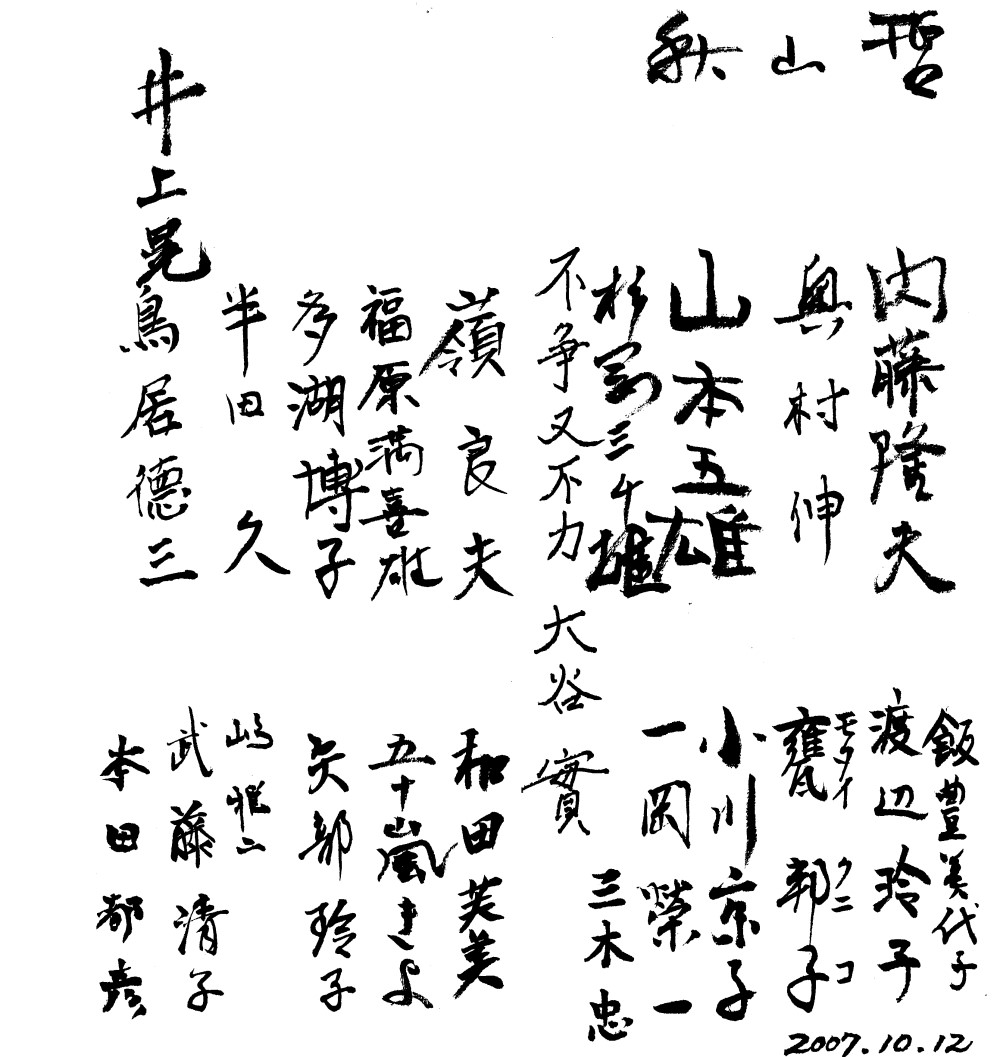 秋山哲
内藤隆夫
奥村伸
山本五雄
杉 三千雄
不争又不力 大谷 實
嶺良夫
福原満喜雄
多湖博子
半田久
井上晃
鳥居徳三
飯豊美代子
渡辺玲子
甕邦子
モタイ クニコ
小川京子
一岡榮一
三木忠
和田芙美
五十嵐きよ
矢部玲子
嶋雅二
武藤清子
本田都彦
2007.10.12